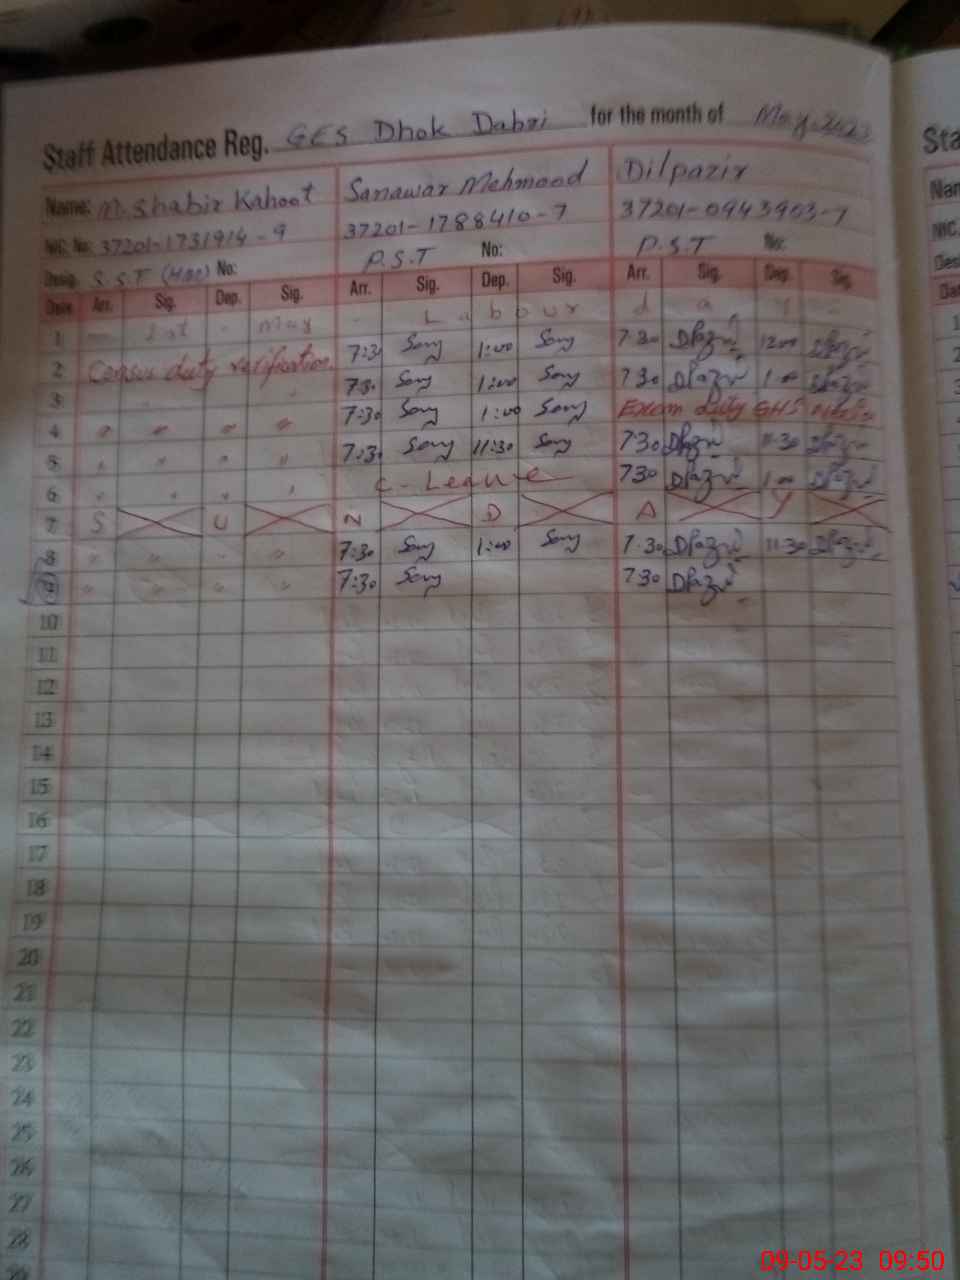 Staff Attendance Reg. GES Dhok Dabri for the month of May-2023
Name: M. Shabir Kahoot Sanawar Mehmood Dilpazir
NIC. No: 37201-1731914-9 37201-1788410-7 37201-0943903-1
Desig. S.S.T No: P.S.T No: P.S.T No:
Date Arr. Sig. Dep. Sig. Arr. Sig. Dep. Sig. Arr. Sig. Dep. Sig.
1 — 1st - May - Labour day -
2 Census duty verification 7:30 1:00 7:30 12:00
3 7:30 1:00 7:30 1:00
4 " " " " 7:30 1:00 Exam duty GHS
5 " " " " 7:30 11:30 7:30 11:30
6 " " " " C-Leave 7:30 1:00
7 S U N D A Y
8 " " " " 7:30 1:00 7:30 11:30
9 " " " " 7:30 7:30
10
11
12
13
14
15
16
17
18
19
20
21
22
23
24
25
26
27
28
29
Sta
Nam
NIC.
Desi
Da
09-05-23 09:50